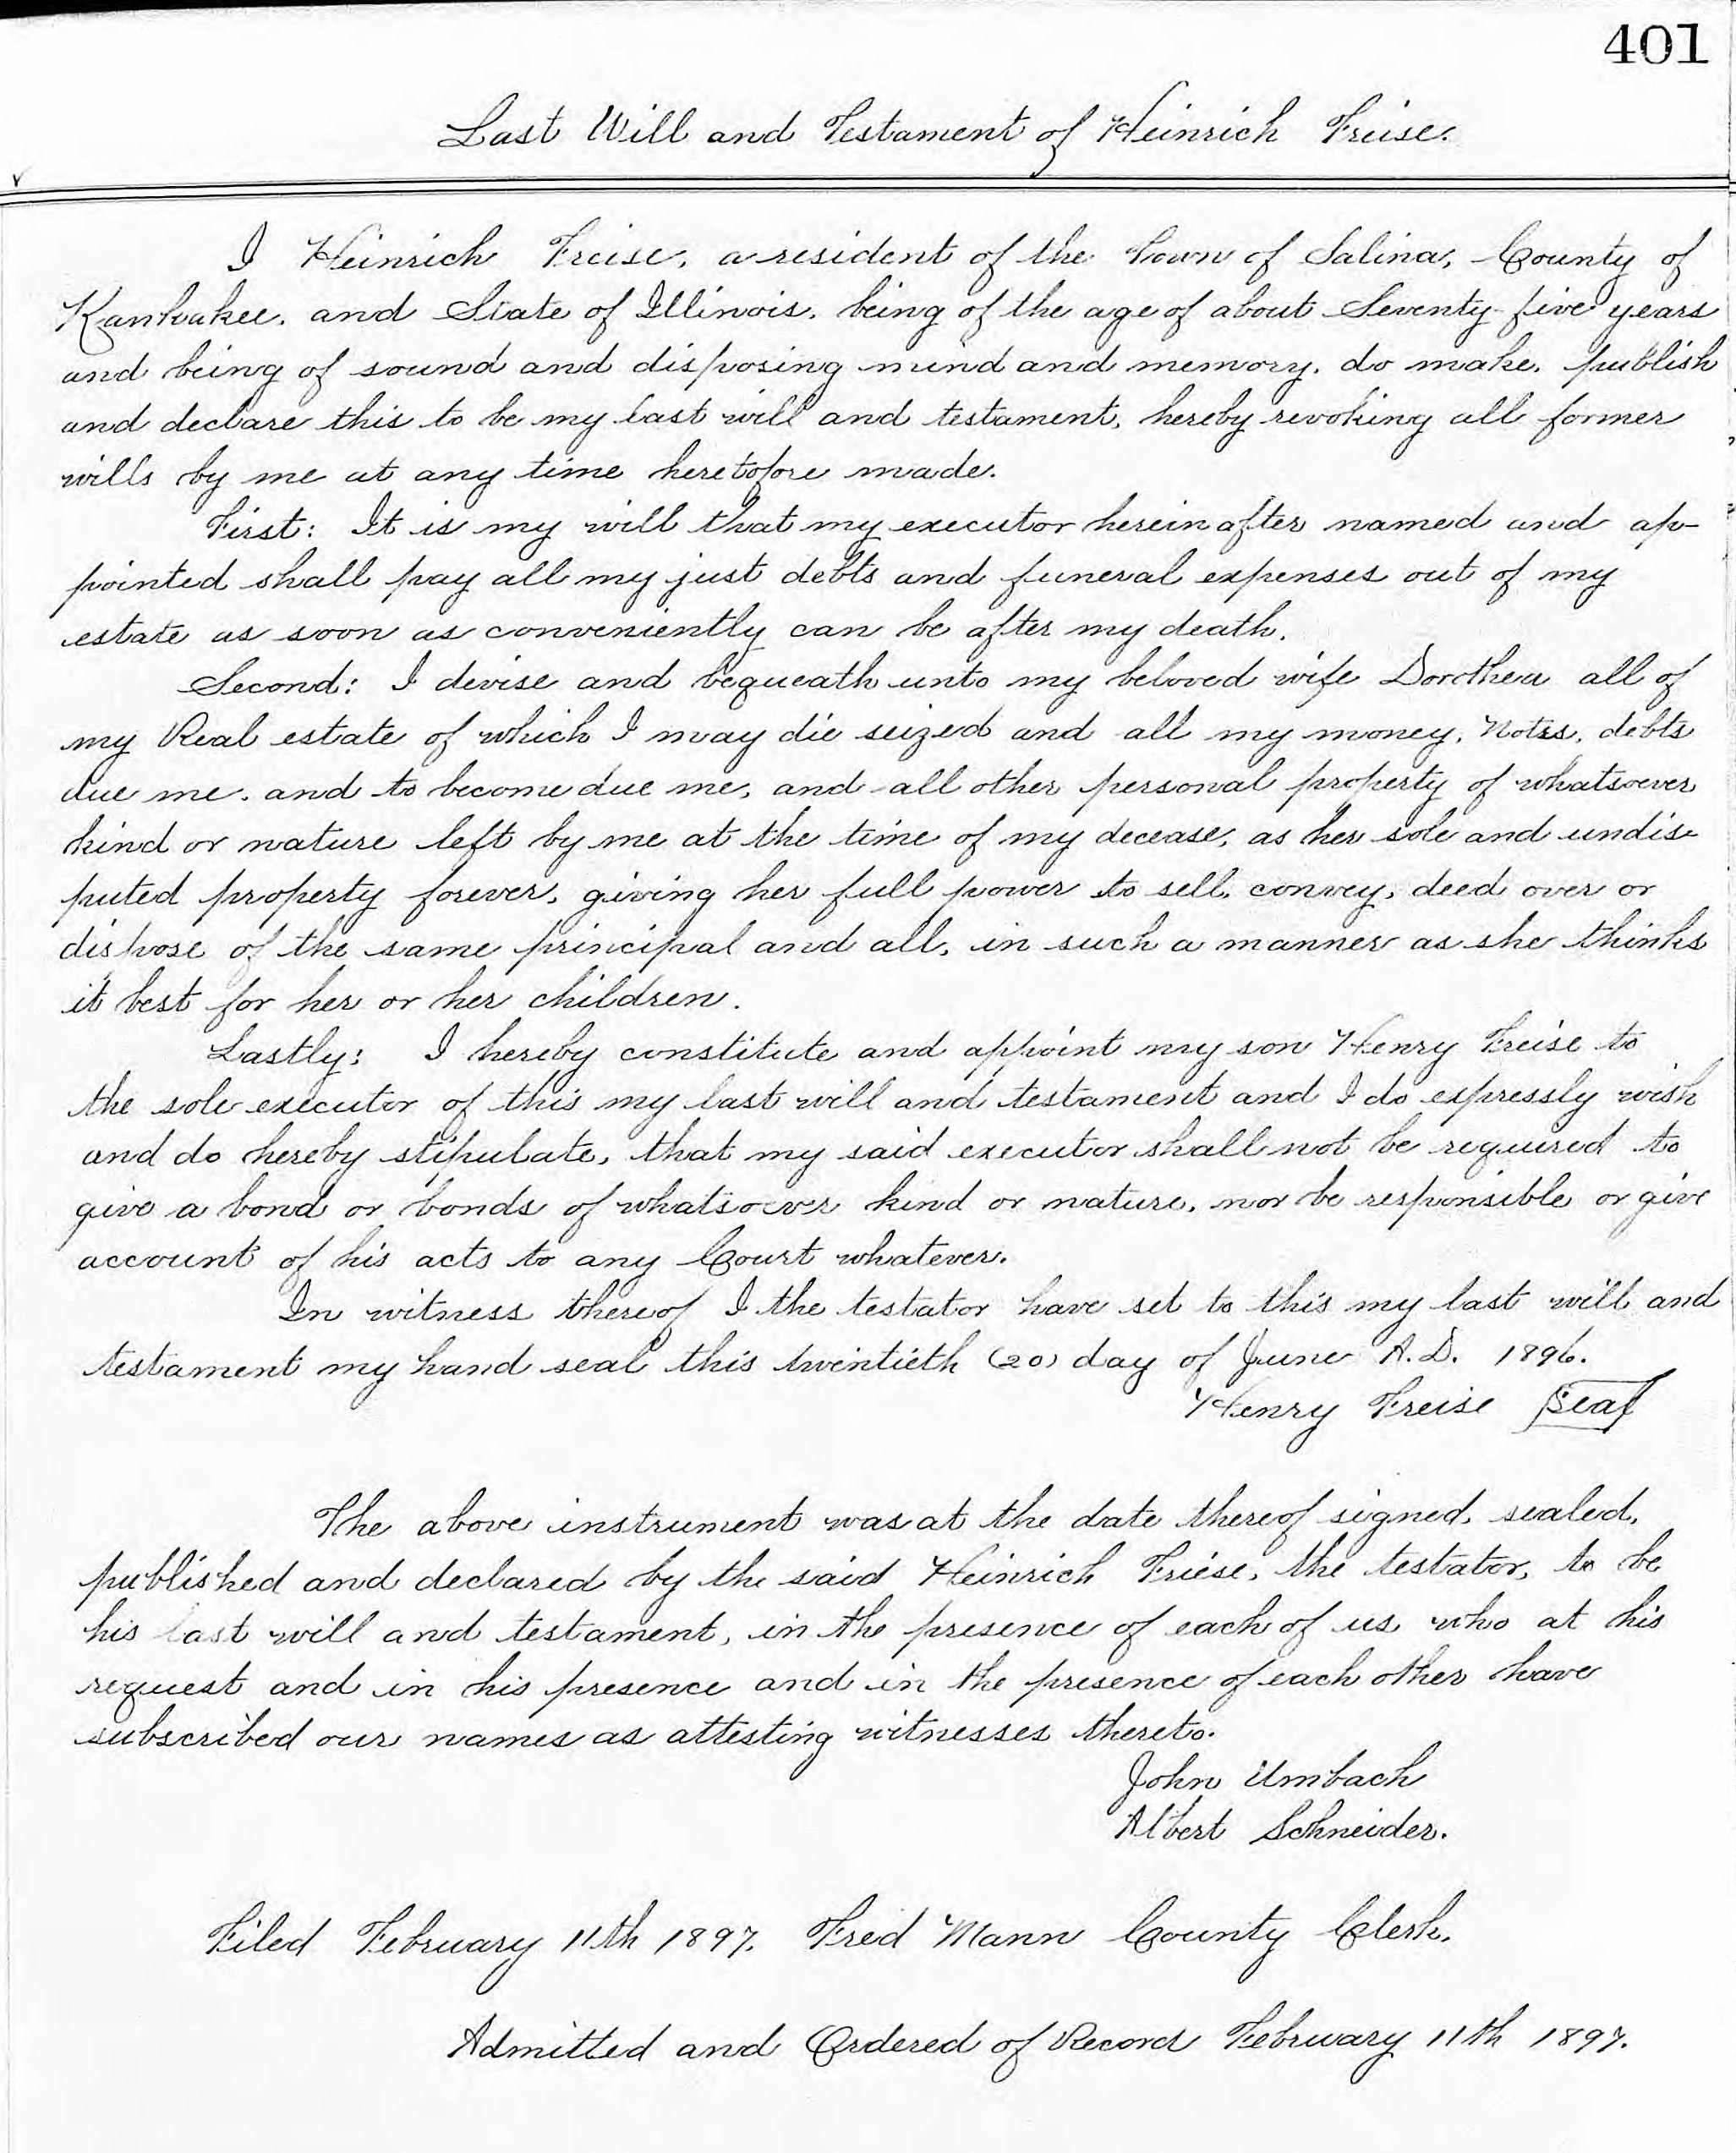 401
Last Will and Testament of Heinrich Freise.
I Heinrich Freise, a resident of the Town of Salina, County of
Kankakee, and State of Illinois, being of the age of about Seventy-five years
and being of sound and disposing mind and memory, do make, publish
and declare this to be my last will and testament, hereby revoking all former
wills by me at any time heretofore made.
First: It is my will that my executor hereinafter named and ap-
pointed shall pay all my just debts and funeral expenses out of my
estate as soon as conveniently can be after my death.
Second: I devise and bequeath unto my beloved wife Dorothea all of
my Real estate of which I may die seized and all my money, Notes, debts
due me, and to become due me, and all other personal property of whatsoever
kind or nature left by me at the time of my decease, as her sole and undis-
puted property forever, giving her full power to sell, convey, deed over or
dispose of the same principal and all, in such a manner as she thinks
it best for her or her children.
Lastly: I hereby constitute and appoint my son Henry Freise to
the sole executor of this my last will and testament and I do expressly wish
and do hereby stipulate, that my said executor shall not be required to
give a bond or bonds of whatsoever kind or nature, nor be responsible or give
account of his acts to any Court whatever.
In witness thereof I the testator have set to this my last will and
testament my hand seal this twentieth (20) day of June A.D. 1896.
Henry Freise Seal
The above instrument was at the date thereof signed, sealed,
published and declared by the said Heinrich Friese, the testator, to be
his last will and testament, in the presence of each of us who at his
request and in his presence and in the presence of each other have
subscribed our names as attesting witnesses thereto.
John Umbach
Albert Schneider.
Filed February 11th 1897. Fred Mann County Clerk.
Admitted and Ordered of Record February 11th 1897.